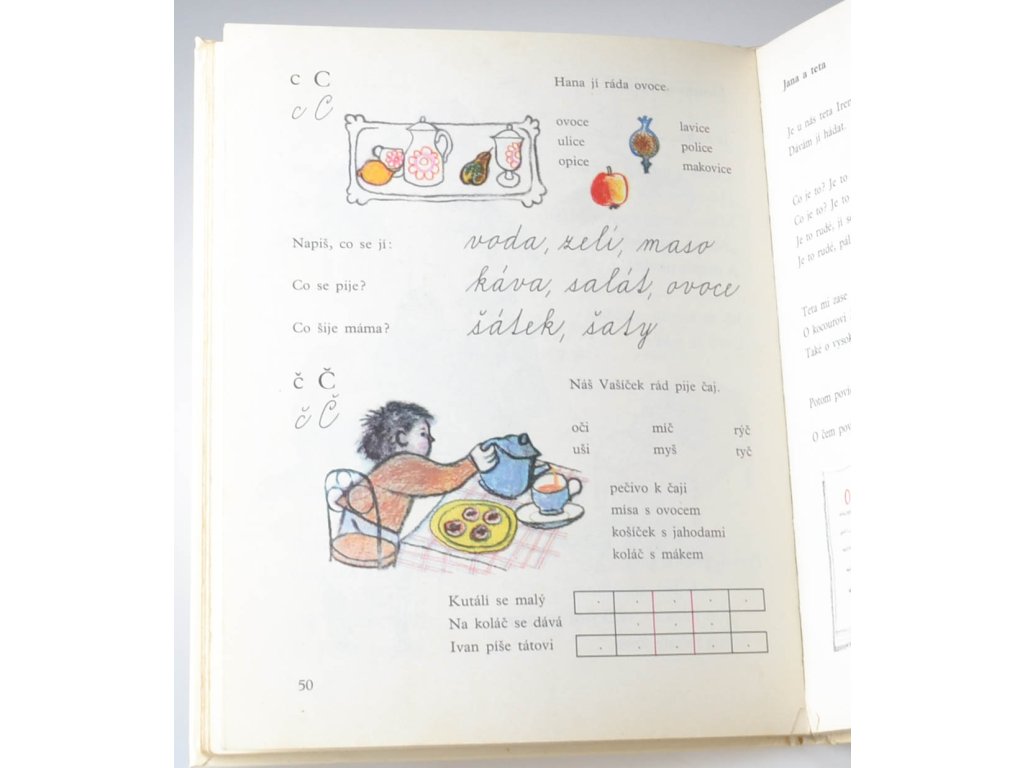 c C
c C
Hana jí ráda ovoce.
ovoce
ulice
opice
lavice
police
makovice
Napiš, co se jí: voda, zelí, maso
Co se pije? káva, salát, ovoce
Co šije máma? šátek, šaty
č Č
č Č
Náš Vašíček rád pije čaj.
oči míč rýč
uši myš tyč
pečivo k čaji
mísa s ovocem
košíček s jahodami
koláč s mákem
Kutálí se malý
Na koláč se dává
Ivan píše tátovi
50
Jana a teta
Je u nás teta
Dávám jí hádat.
Co je to? Je to
Co je to? Je to
Je to rudé, jí
Je to rudé,
Teta mi zase
O kocourovi
Také o
Potom
O čem